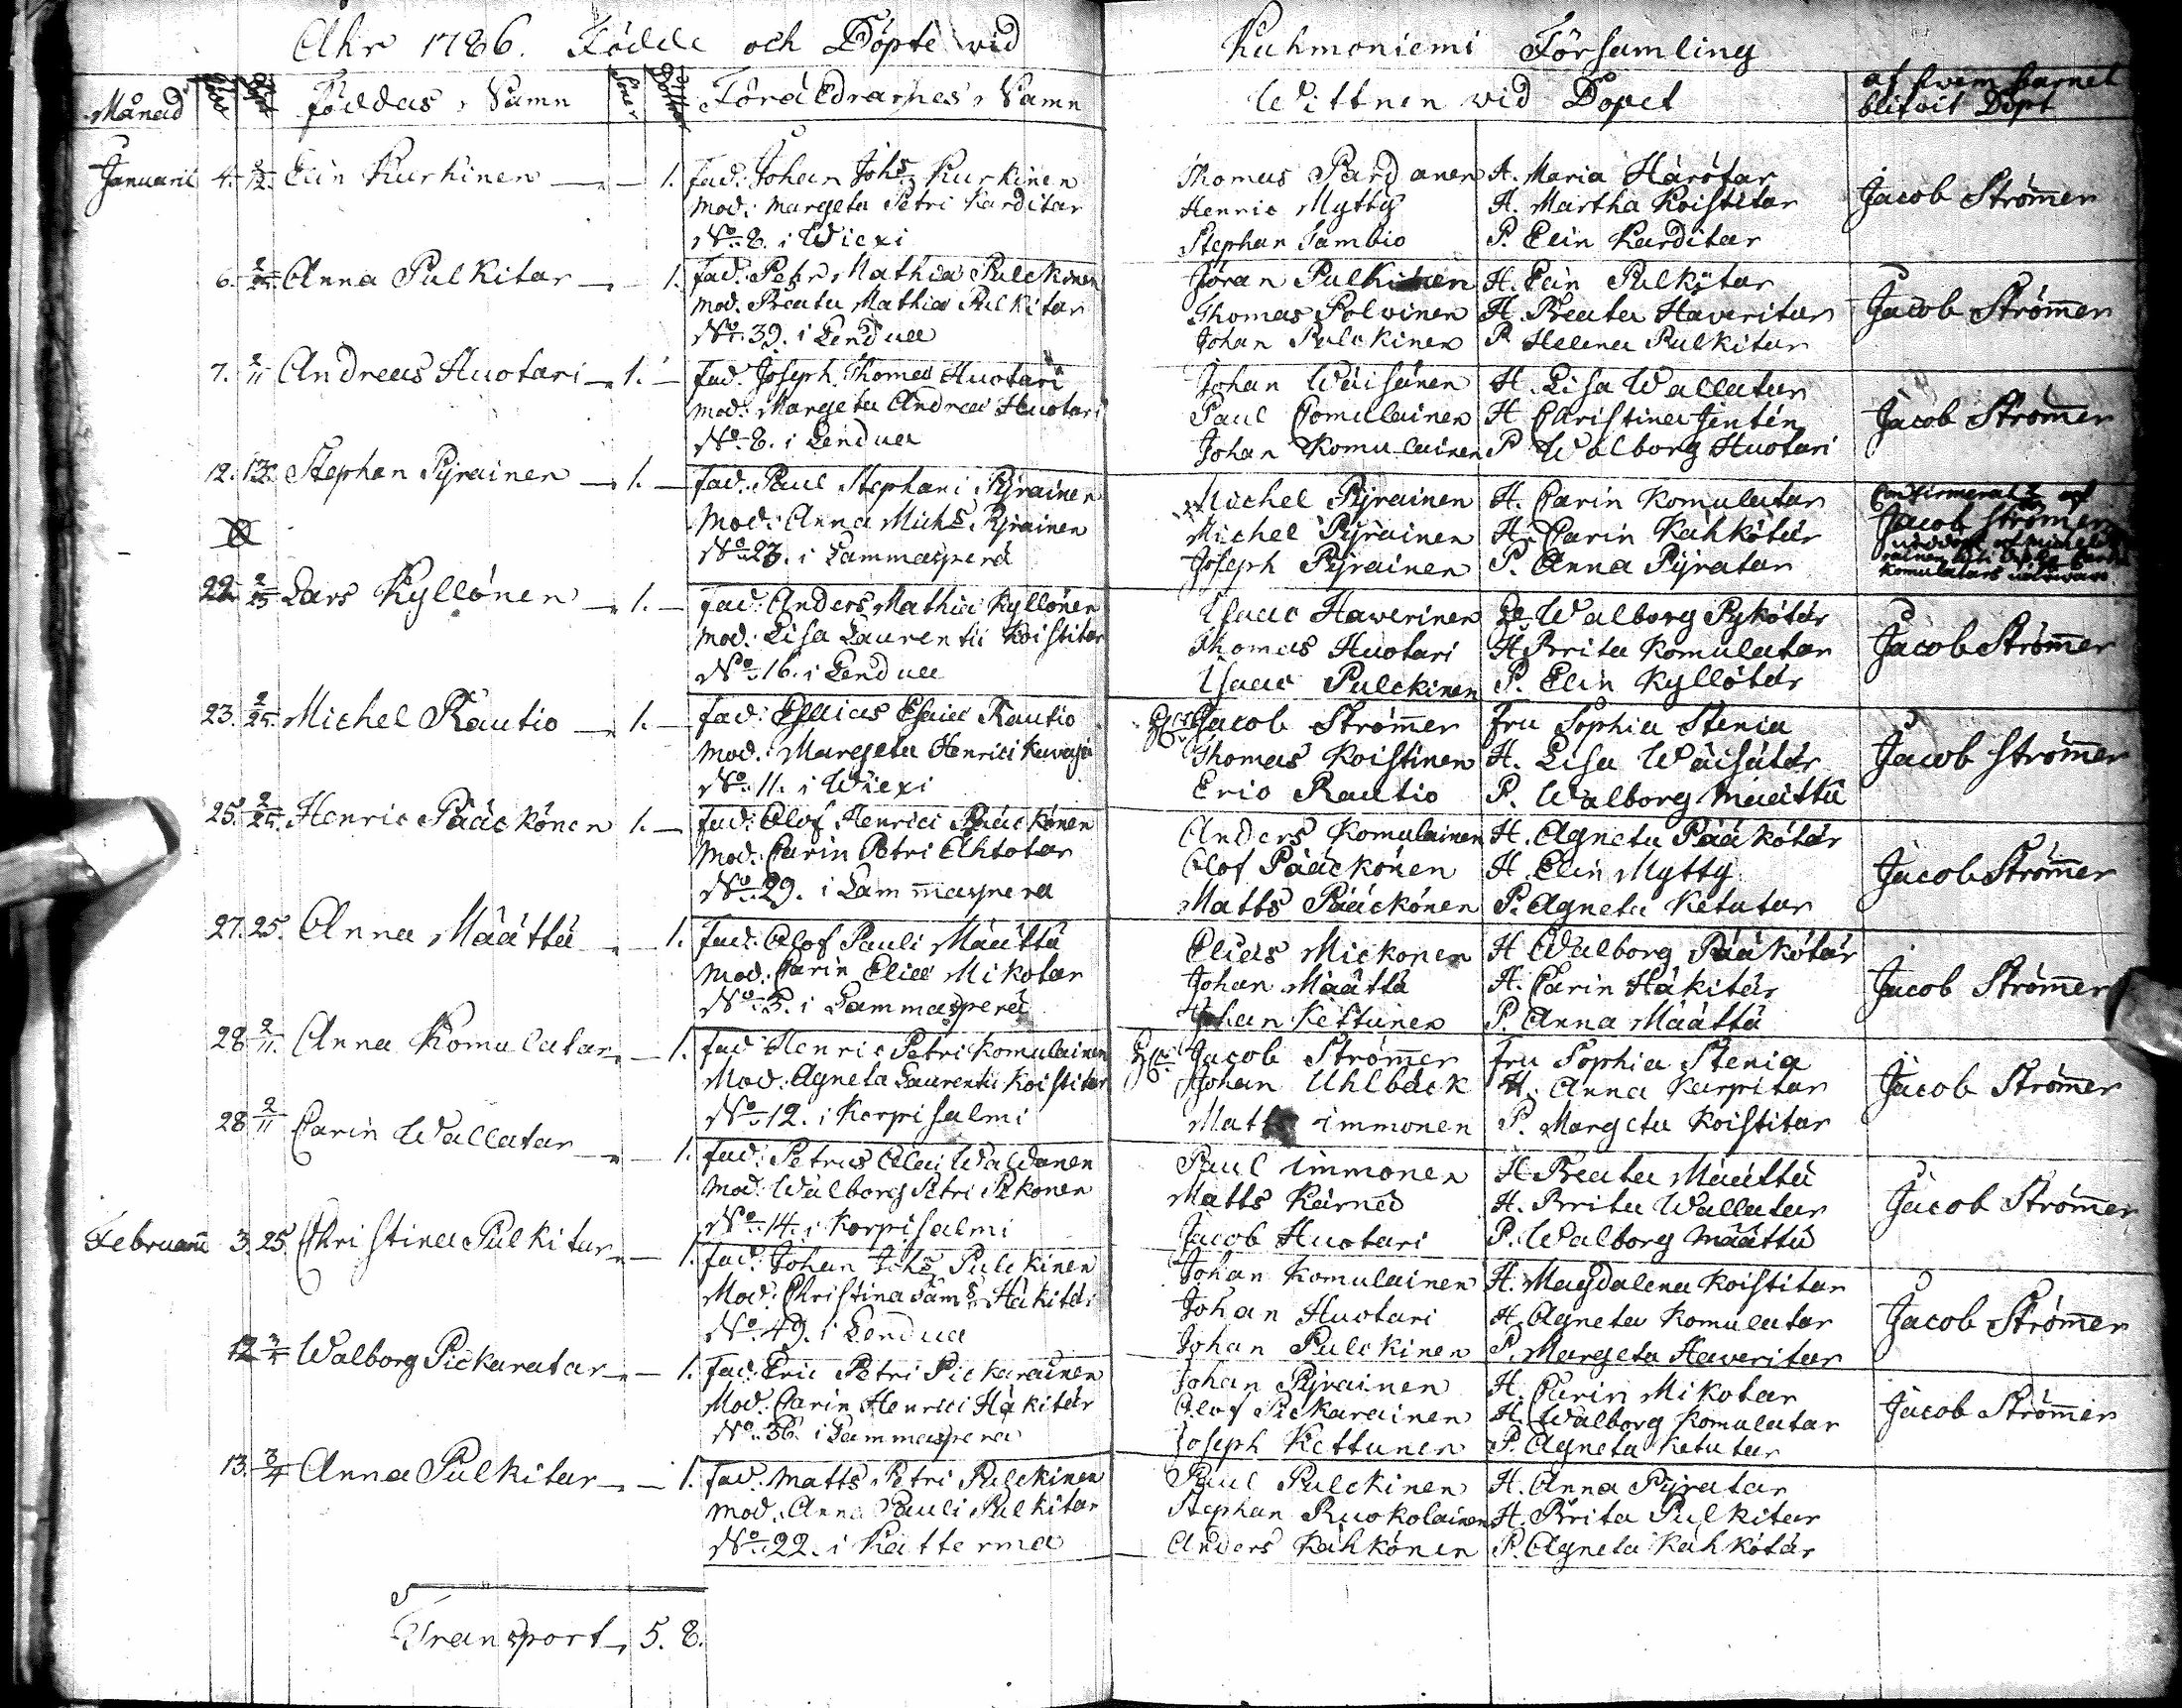 Åhr 1786. Födde och Döpte wid
Månad
Född
Döpt
Föddas Namn
Söner
Döttrar
Föräldrarnes Namn
Januarii 4. 2/12. Elin Kurkinen 1. fad: Johan Johs Kurkinen
Mod: Margeta Petri Karditar
No 8. i Wiexi
6. Anna Pulkitar 1. fad: Petr Mathiæ Pulckinen
Mod. Beata Mathiæ Pulkitar
No 39. i Lendua
7. 2/11 Andreas Huotari 1. fad: Joseph Thomæ Huotari
Mod: Margeta Andreæ Huotari
No 8. i Lendua
12. 13. Stephan Pyrainen 1. fad: Paul Stephani Pyrainen
Mod: Anna Michs Pyrainen
No 23. i Lammasperä
22. 2/25 Lars Kyllönen 1. fad: Anders Mathiæ Kyllönen
Mod: Lisa Laurentii Koistitar
No 16. i Lendua
23. 2/25. Michel Rautio 1. fad: Esaias Esaiæ Rautio
Mod: Margeta Henrici
No 11. i Wiexi
25. 2/25. Henric Pääckönen 1. fad: Olof Henrici Pääckönen
Mod: Carin Petri Ahtotar
No 29. i Lammaspera
27. 25. Anna Määttä 1. fad: Olof Pauli Määttä
Mod: Carin Eliæ Mikotar
No 5. i Lammasperä
28 2/11. Anna Komulatar 1. fad Henric Petri Komulainen
Mod. Agneta Laurentii Koistitar
No 12. i Korpisalmi
28 2/11 Carin Wallatar 1. fad: Petrus Olai Waldanen
Mod: Walborg Petri Pikonen
No 14. i Korpisalmi
Februarii 3. 25. Christina Pulkitar 1. fad: Johan Johs Pulckinen
Mod: Christina Sams Häkitär
No 49. i Lendua
12 Walborg Pickaratar 1. fad: Eric Petri Pickarainen
Mod. Carin Henrici Häkitär
No 36. i Lammaspera
13. 3/4 Anna Pulkitar 1. fad. Matts Petri Pulckinen
Mod. Anna Pauli Pulkitar
No 22. i Katterma
Transport 5. 8.
Kuhmoniemi Församling
Wittnen wid Dopet
af hvem barnet
blifvit Döpt
Thomas Pardanen H. Maria Härötar
Henric Mytty H. Martha Koistitar Jacob Strömmer
Stephan Tambio P. Elin Karditar
Jöran Pulkinen H. Elin Pulkitar
Thomas Polvinen H. Beata Haveritar Jacob Strömmer
Johan Pulckinen P Helena Pulkitar
Johan Wäisänen H. Lisa Wallatar
Paul Comulainen H Christina Jentén Jacob Strömmer
Johan Komulainen P Walborg Huotari
Michel Pyrainen H. Carin Komulatar Confirmerat af
Michel Pyrainen H. Carin Kähkötär Jacob Strömer
Joseph Pyrainen P. Anna Pyratar
Komulatars närwaro
Isaac Haverinen H. Walborg Pykötär
Thomas Huotari H Brita Komulatar Jacob Strömmer
Isaac Pulckinen P. Elin Kyllötär
Jacob Strömmer fru Sophia Stenia
Thomas Koistinen H. Lisa Wäisätär Jacob Strömmer
Eric Rautio P. Walborg Määttä
Anders Komulainen H. Agneta Pääkötär
Olof Pääckönen H Elin Mytty Jacob Strömmer
Matts Pääckönen P. Agneta Ketutar
Elias Mickonen H Walborg Pääkötär
Johan Määttä H. Carin Häkitär Jacob Strömmer
Johan Kettunen P. Anna Määttä
Jacob Strömmer fru Sophia Stenia
Johan Uhlbäck H. Anna Karpitar Jacob Strömmer
Matts immonen P. Margeta Koistitar
Paul immonen H Beata Määttä
Matts Kärnä H. Brita Wallatar Jacob Strömmer
Jacob Huotari P. Walborg Määttä
Johan Komulainen H. Magdalena Koistitar
Johan Huotari H. Agneta Komulatar Jacob Strömmer
Johan Pulckinen P. Margeta Haveritar
Johan Pyrainen H. Carin Mikotar
Olof Pickarainen H. Walborg Komulatar Jacob Strömmer
Joseph Kettunen P. Agneta Ketutar
Paul Pulckinen H. Anna Pyratar
Stephan Ruokolainen H. Brita Pulkitar
Anders Kähkönen P. Agneta Kähkötär